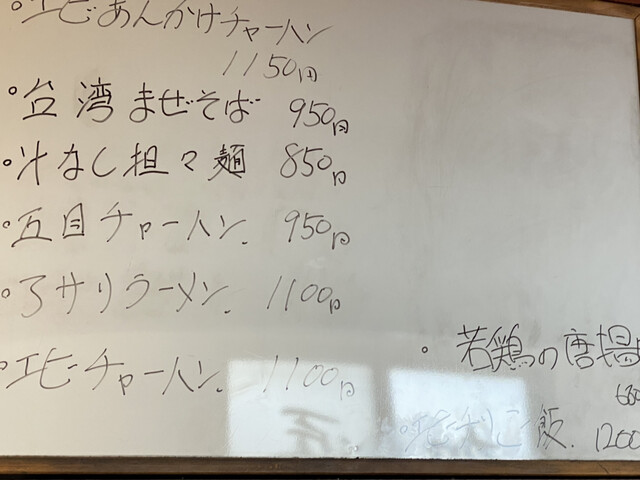 エビあんかけチャーハン
1150円
台湾まぜそば 950円
汁なし担々麺 850円
五目チャーハン. 950円
アサリラーメン. 1100円
エビチャーハン. 1100円
若鶏の唐揚
飯. 1200